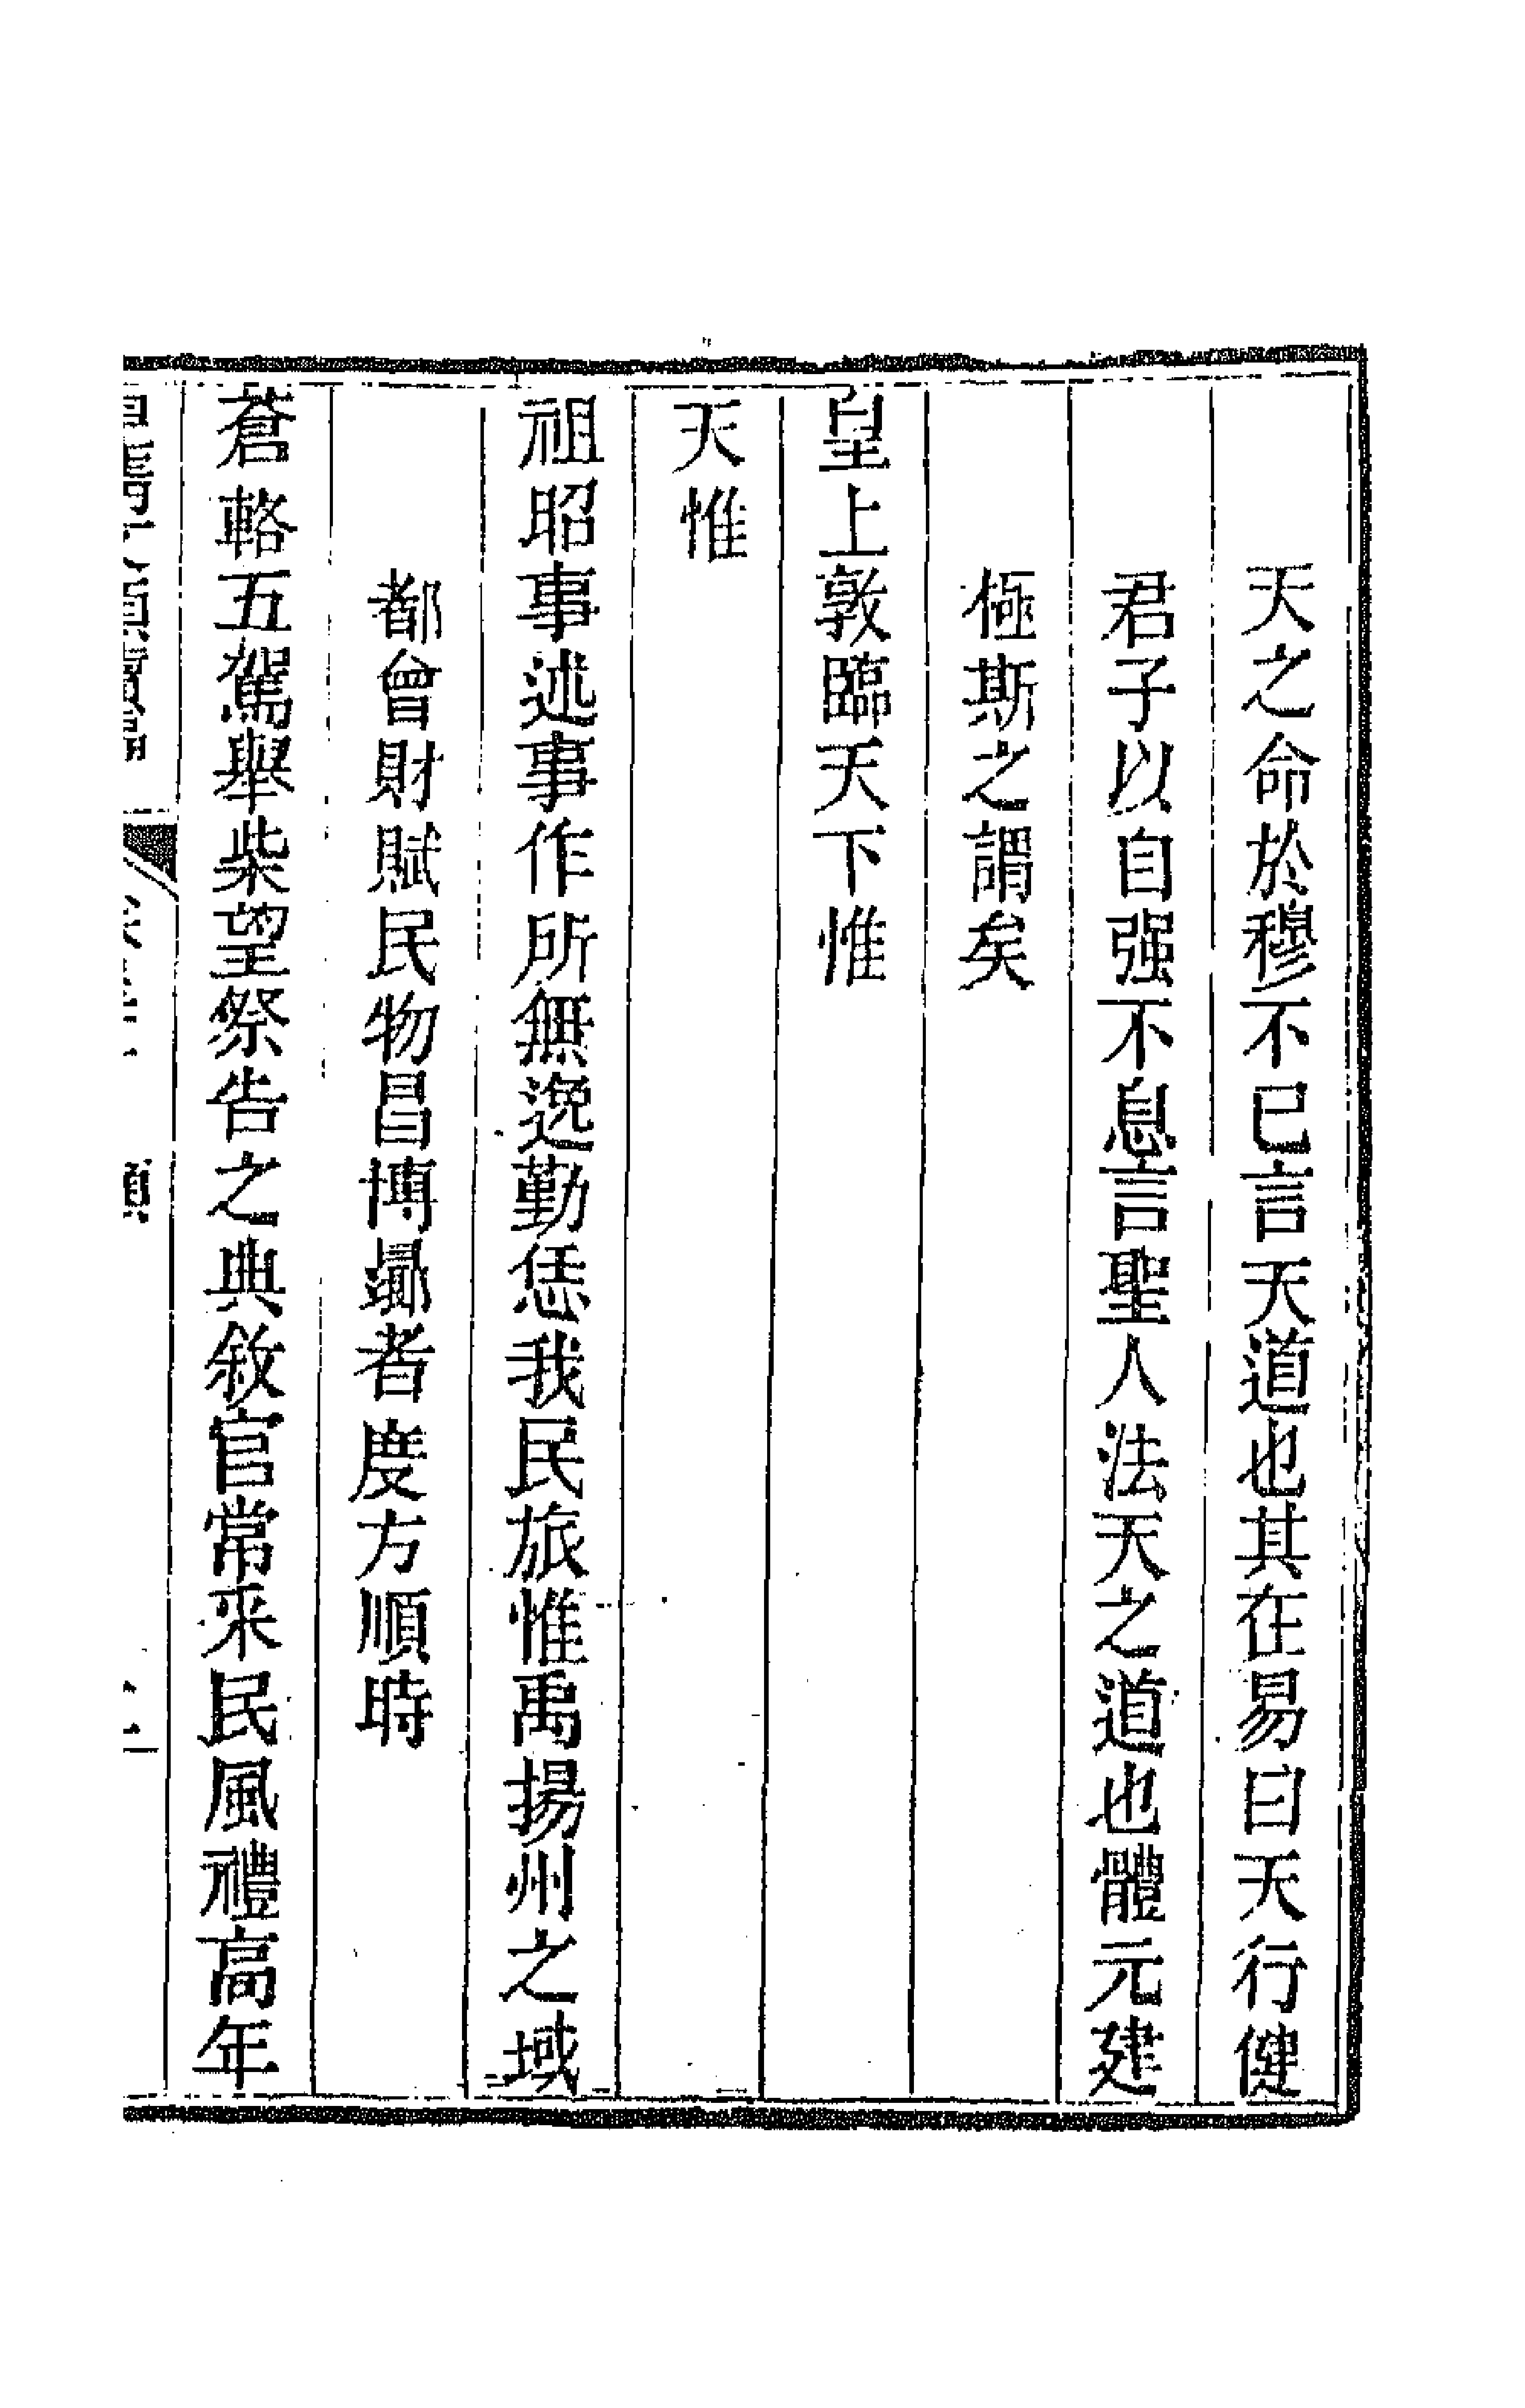 天之命於穆不已言天道也其在易曰天行健
君子以自强不息言聖人法天之道也體元建
極斯之謂矣
皇上敦臨天下惟
天惟
祖昭事述事作所無逸勤恁我民旅惟禹揚州之域
都會財賦民物昌博㬎者度方順時
蒼輅五駕舉柴望祭告之典敘官常来民風禮高年